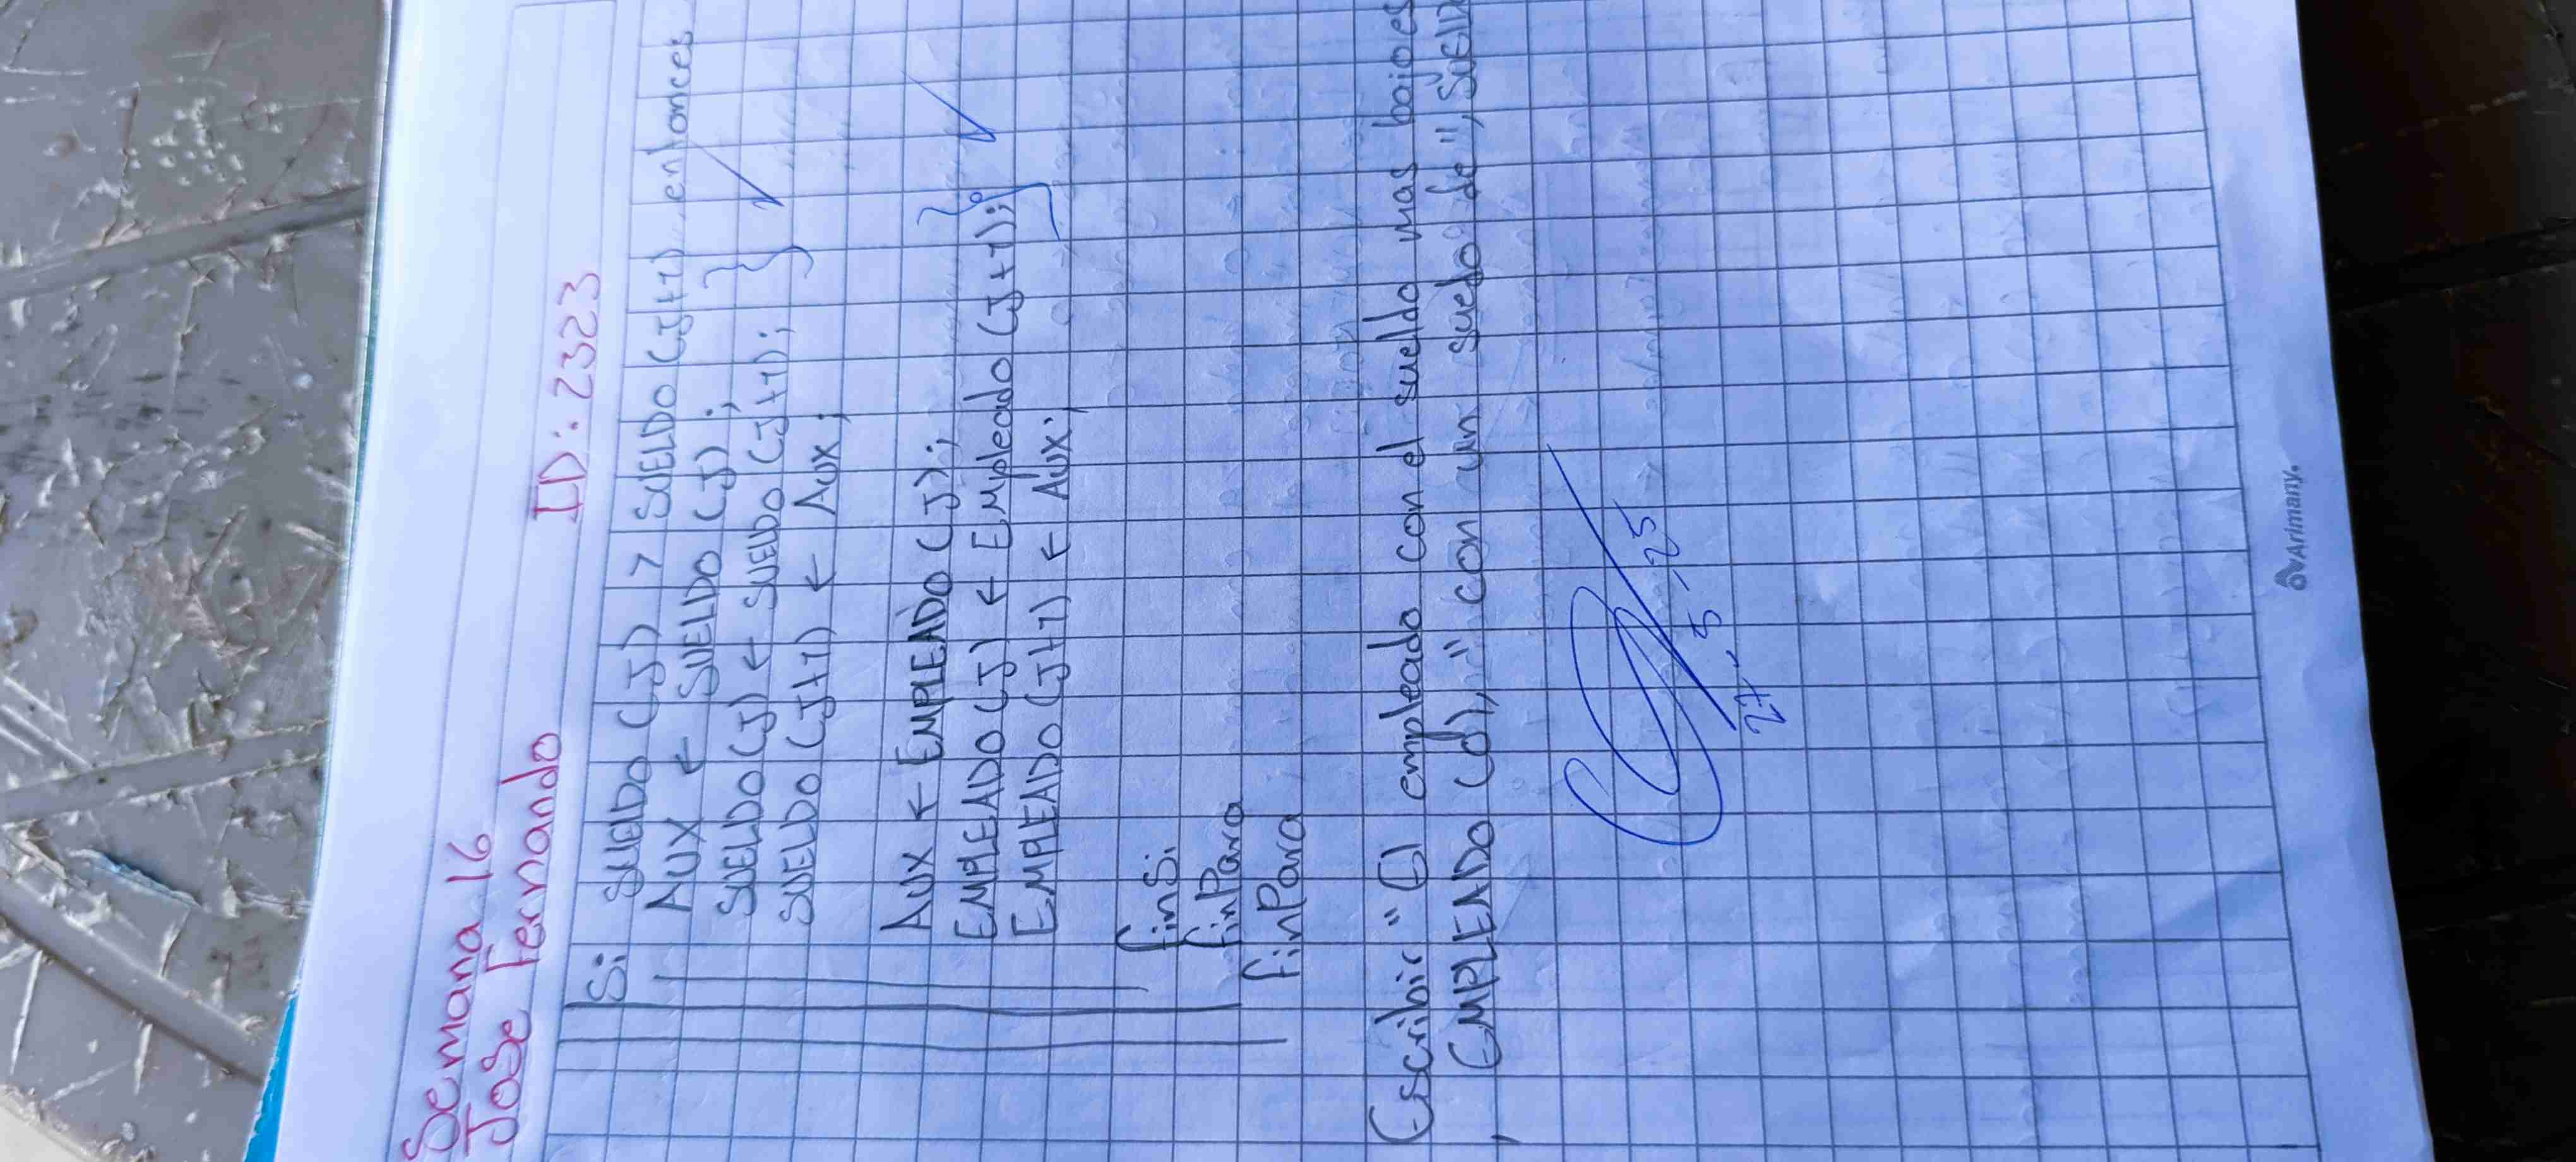 Semana 16
Jose Fernando ID: 2323
Si SUELDO (J) > SUELDO (J+1) entonces
AUX ← SUELDO (J);
SUELDO (J) ← SUELDO (J+1);
SUELDO (J+1) ← Aux;
Aux ← EMPLEADO (J);
EMPLEADO (J) ← EMpleado (J+1);
EMPLEADO (J+1) ← Aux;
finSi
finPara
finPara
Escribir "El empleado con el sueldo mas bajo es
, EMPLEADO (0), " con un sueldo de ", SUELD
27-5-25
Arimany.